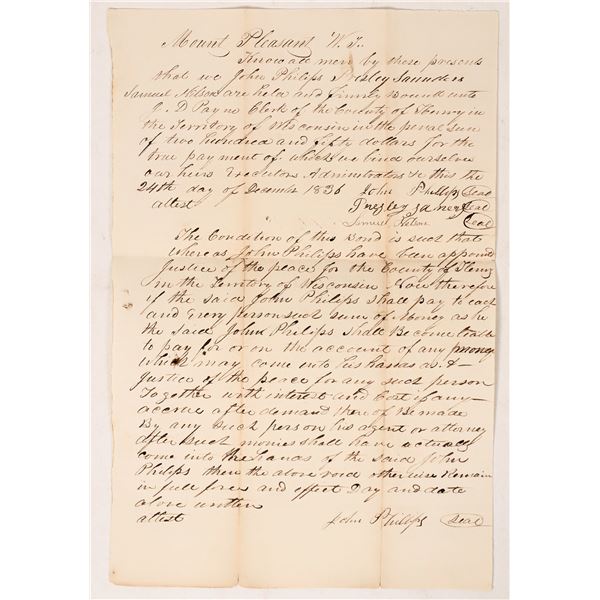 Mount Pleasant W. T.
Know all men by these presents
that we John Philips Presley Saunders
Samuel Nelson are held and firmly Bound unto
J. D Payne Clerk of the County of Henry in
the Territory of Wisconsin in the penal sum
of two hundred and fifty dollars for the
true payment of which we bind ourselves
our heirs Executors Administrators &c this the
24th day of December 1836 John Phillips Seal
attest Seal
Samuel Nelson Seal
The Condition of this Bond is such that
whereas John Philips have been appoind
Justice of the peace for the County of Henry
in the Territory of Wisconsin Now therefore
if the said John Philips shall pay to each
and Every person such sum of Money as he
the said John Philips shall Become liable
to pay for or on the account of any money
which may come into his hands as A
Justice of the peace for any such person
Together with interest and Cost if any
accrue after demand there of Be made
By any such person his agent or attorney
after such monies shall have actually
come into the hands of the said John
Philips then the above void other wise Remain
in full force and effect Day and date
above written
attest John Phillips Seal